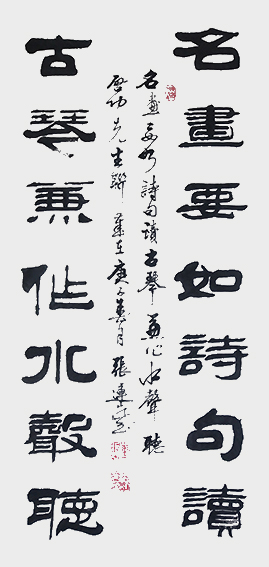 名畫要如詩句讀
名畫要如詩句讀古琴兼作水聲聽
啟功先生聯 歲在庚子 月 張連
古琴兼作水聲聽